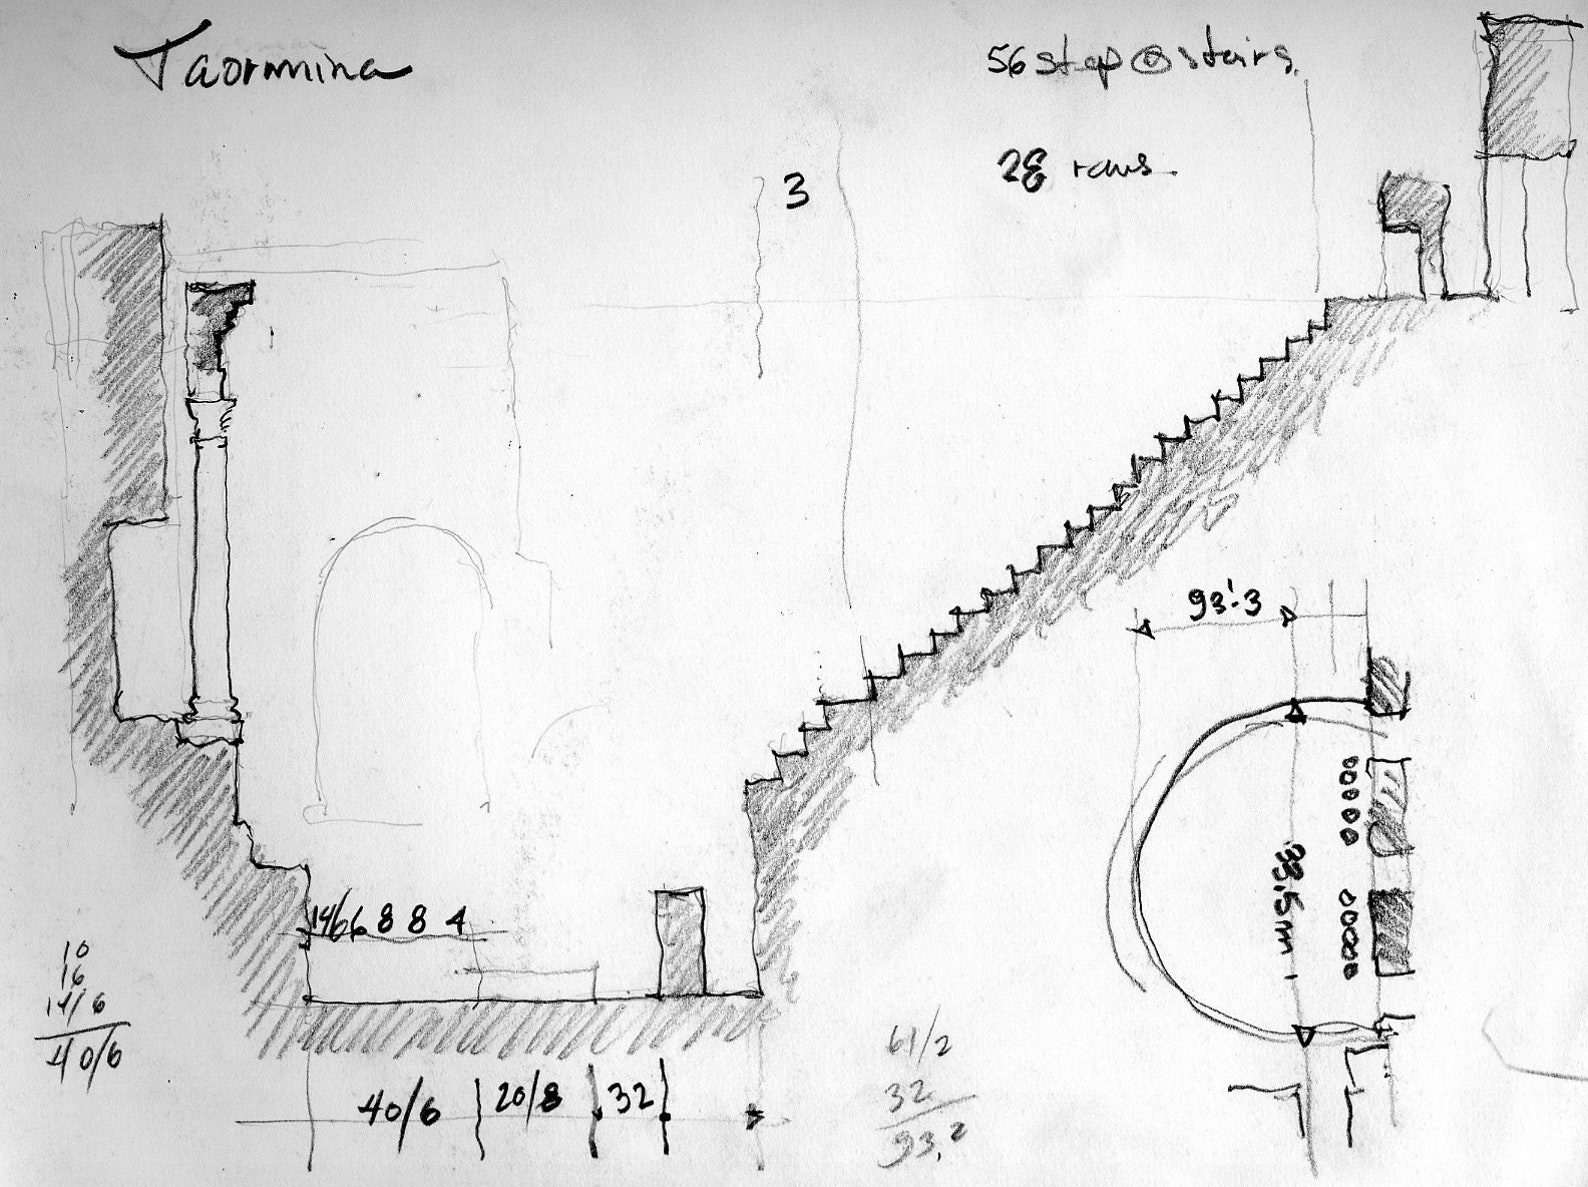 Taormina
56 step @ stairs.
3
28 rows.
93'-3
33.5m
14/6 6 8 8 4
10
16
14/6
40/6
61/2
32
93,2
40/6 20/8 32